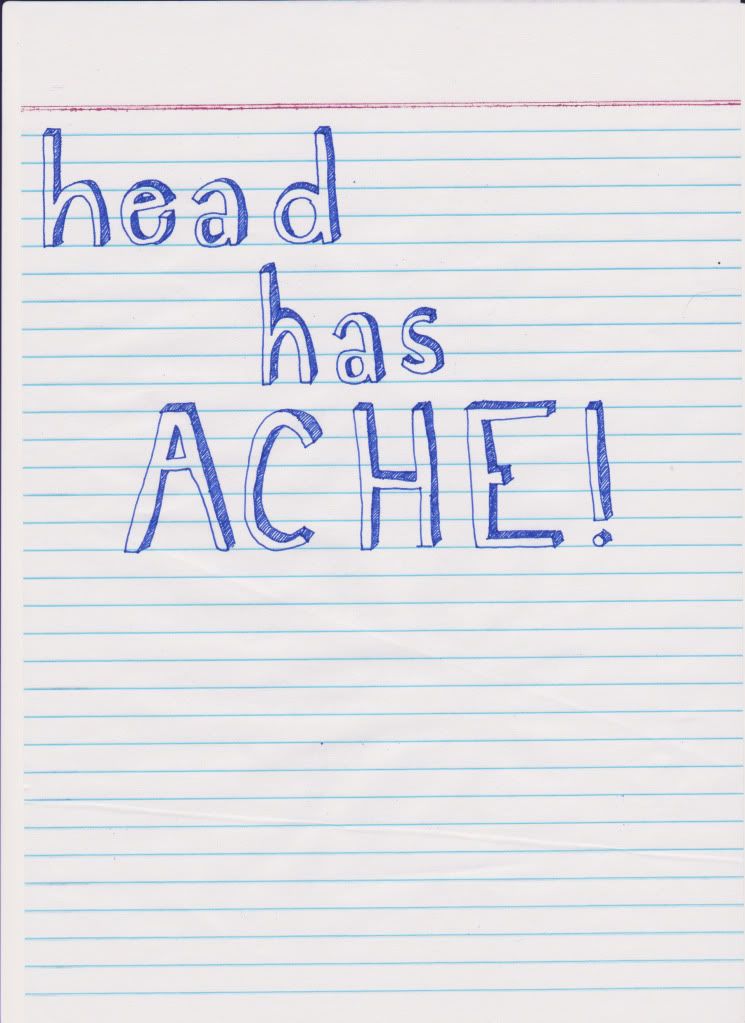 head
has
ACHE!